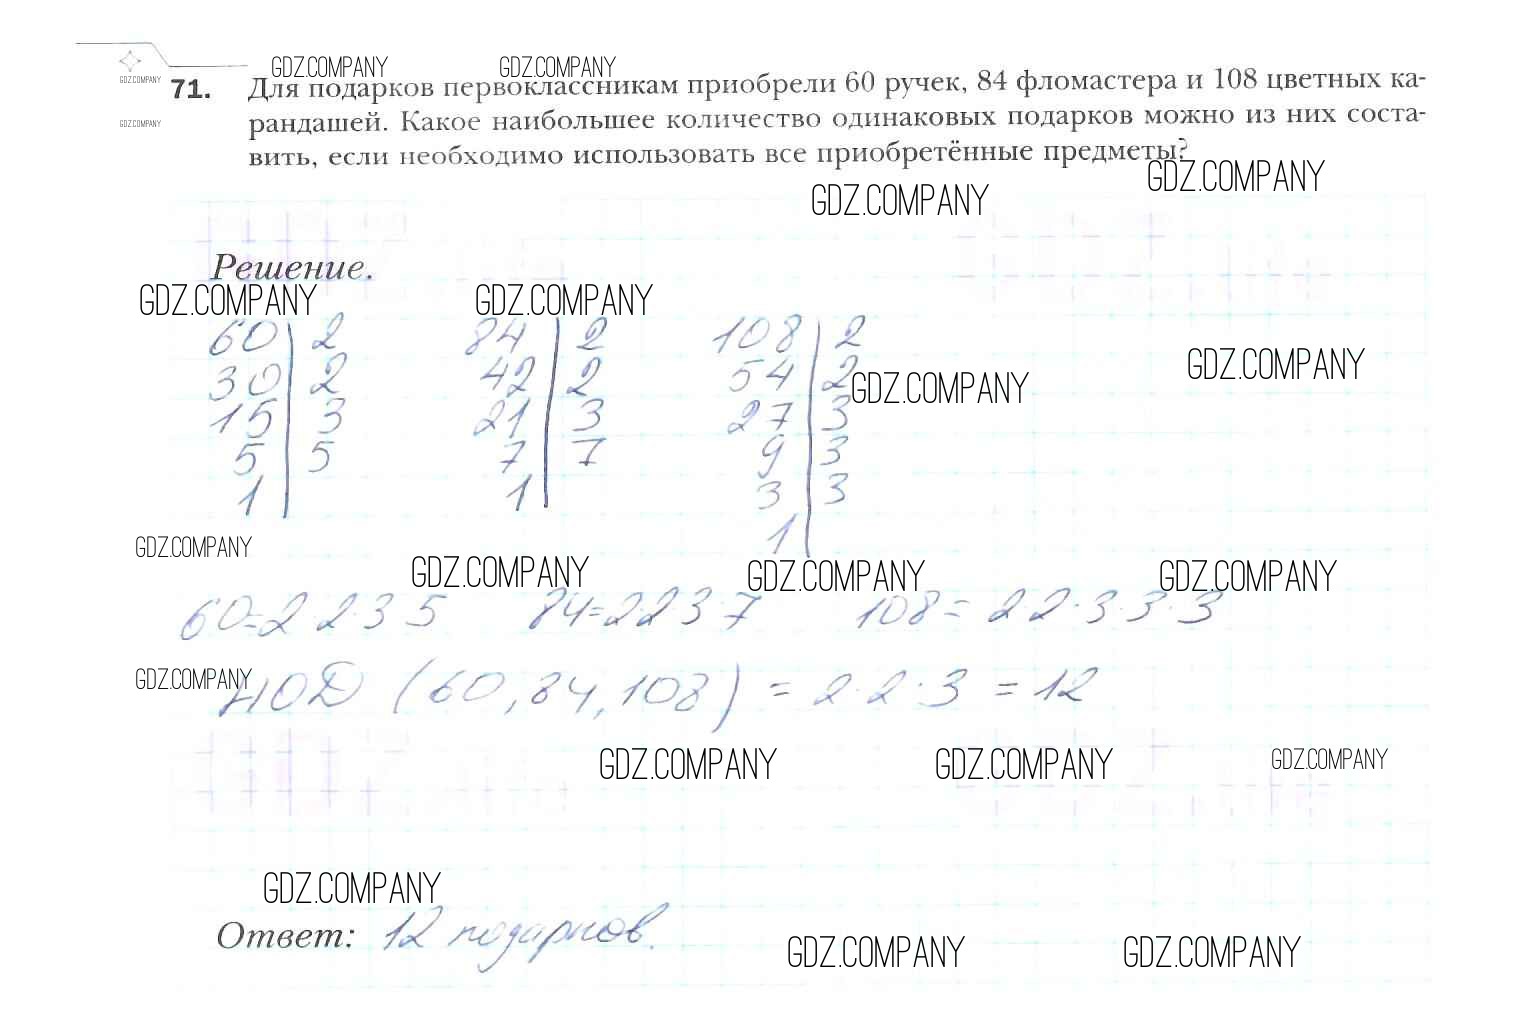 GDZ.COMPANY GDZ.COMPANY
GDZ.COMPANY
71. Для подарков первоклассникам приобрели 60 ручек, 84 фломастера и 108 цветных ка-
GDZ.COMPANY
рандашей. Какое наибольшее количество одинаковых подарков можно из них соста-
вить, если необходимо использовать все приобретённые предметы?
GDZ.COMPANY
GDZ.COMPANY
Решение.
GDZ.COMPANY GDZ.COMPANY
60 | 2 84 | 2 108 | 2
GDZ.COMPANY
30 | 2 42 | 2 54 | 2
GDZ.COMPANY
15 | 3 21 | 3 27 | 3
5 | 5 7 | 7 9 | 3
1 1 3 | 3
1
GDZ.COMPANY
GDZ.COMPANY GDZ.COMPANY GDZ.COMPANY
60=2 2·3 5 84=2·2·3·7 108= 2·2·3·3·3
GDZ.COMPANY
НОД (60,84,108) = 2·2·3 = 12
GDZ.COMPANY GDZ.COMPANY GDZ.COMPANY
GDZ.COMPANY
Ответ: 12 подарков.
GDZ.COMPANY GDZ.COMPANY